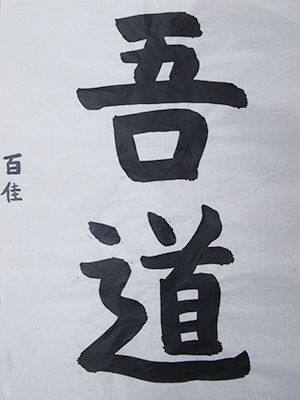 吾道
百佳